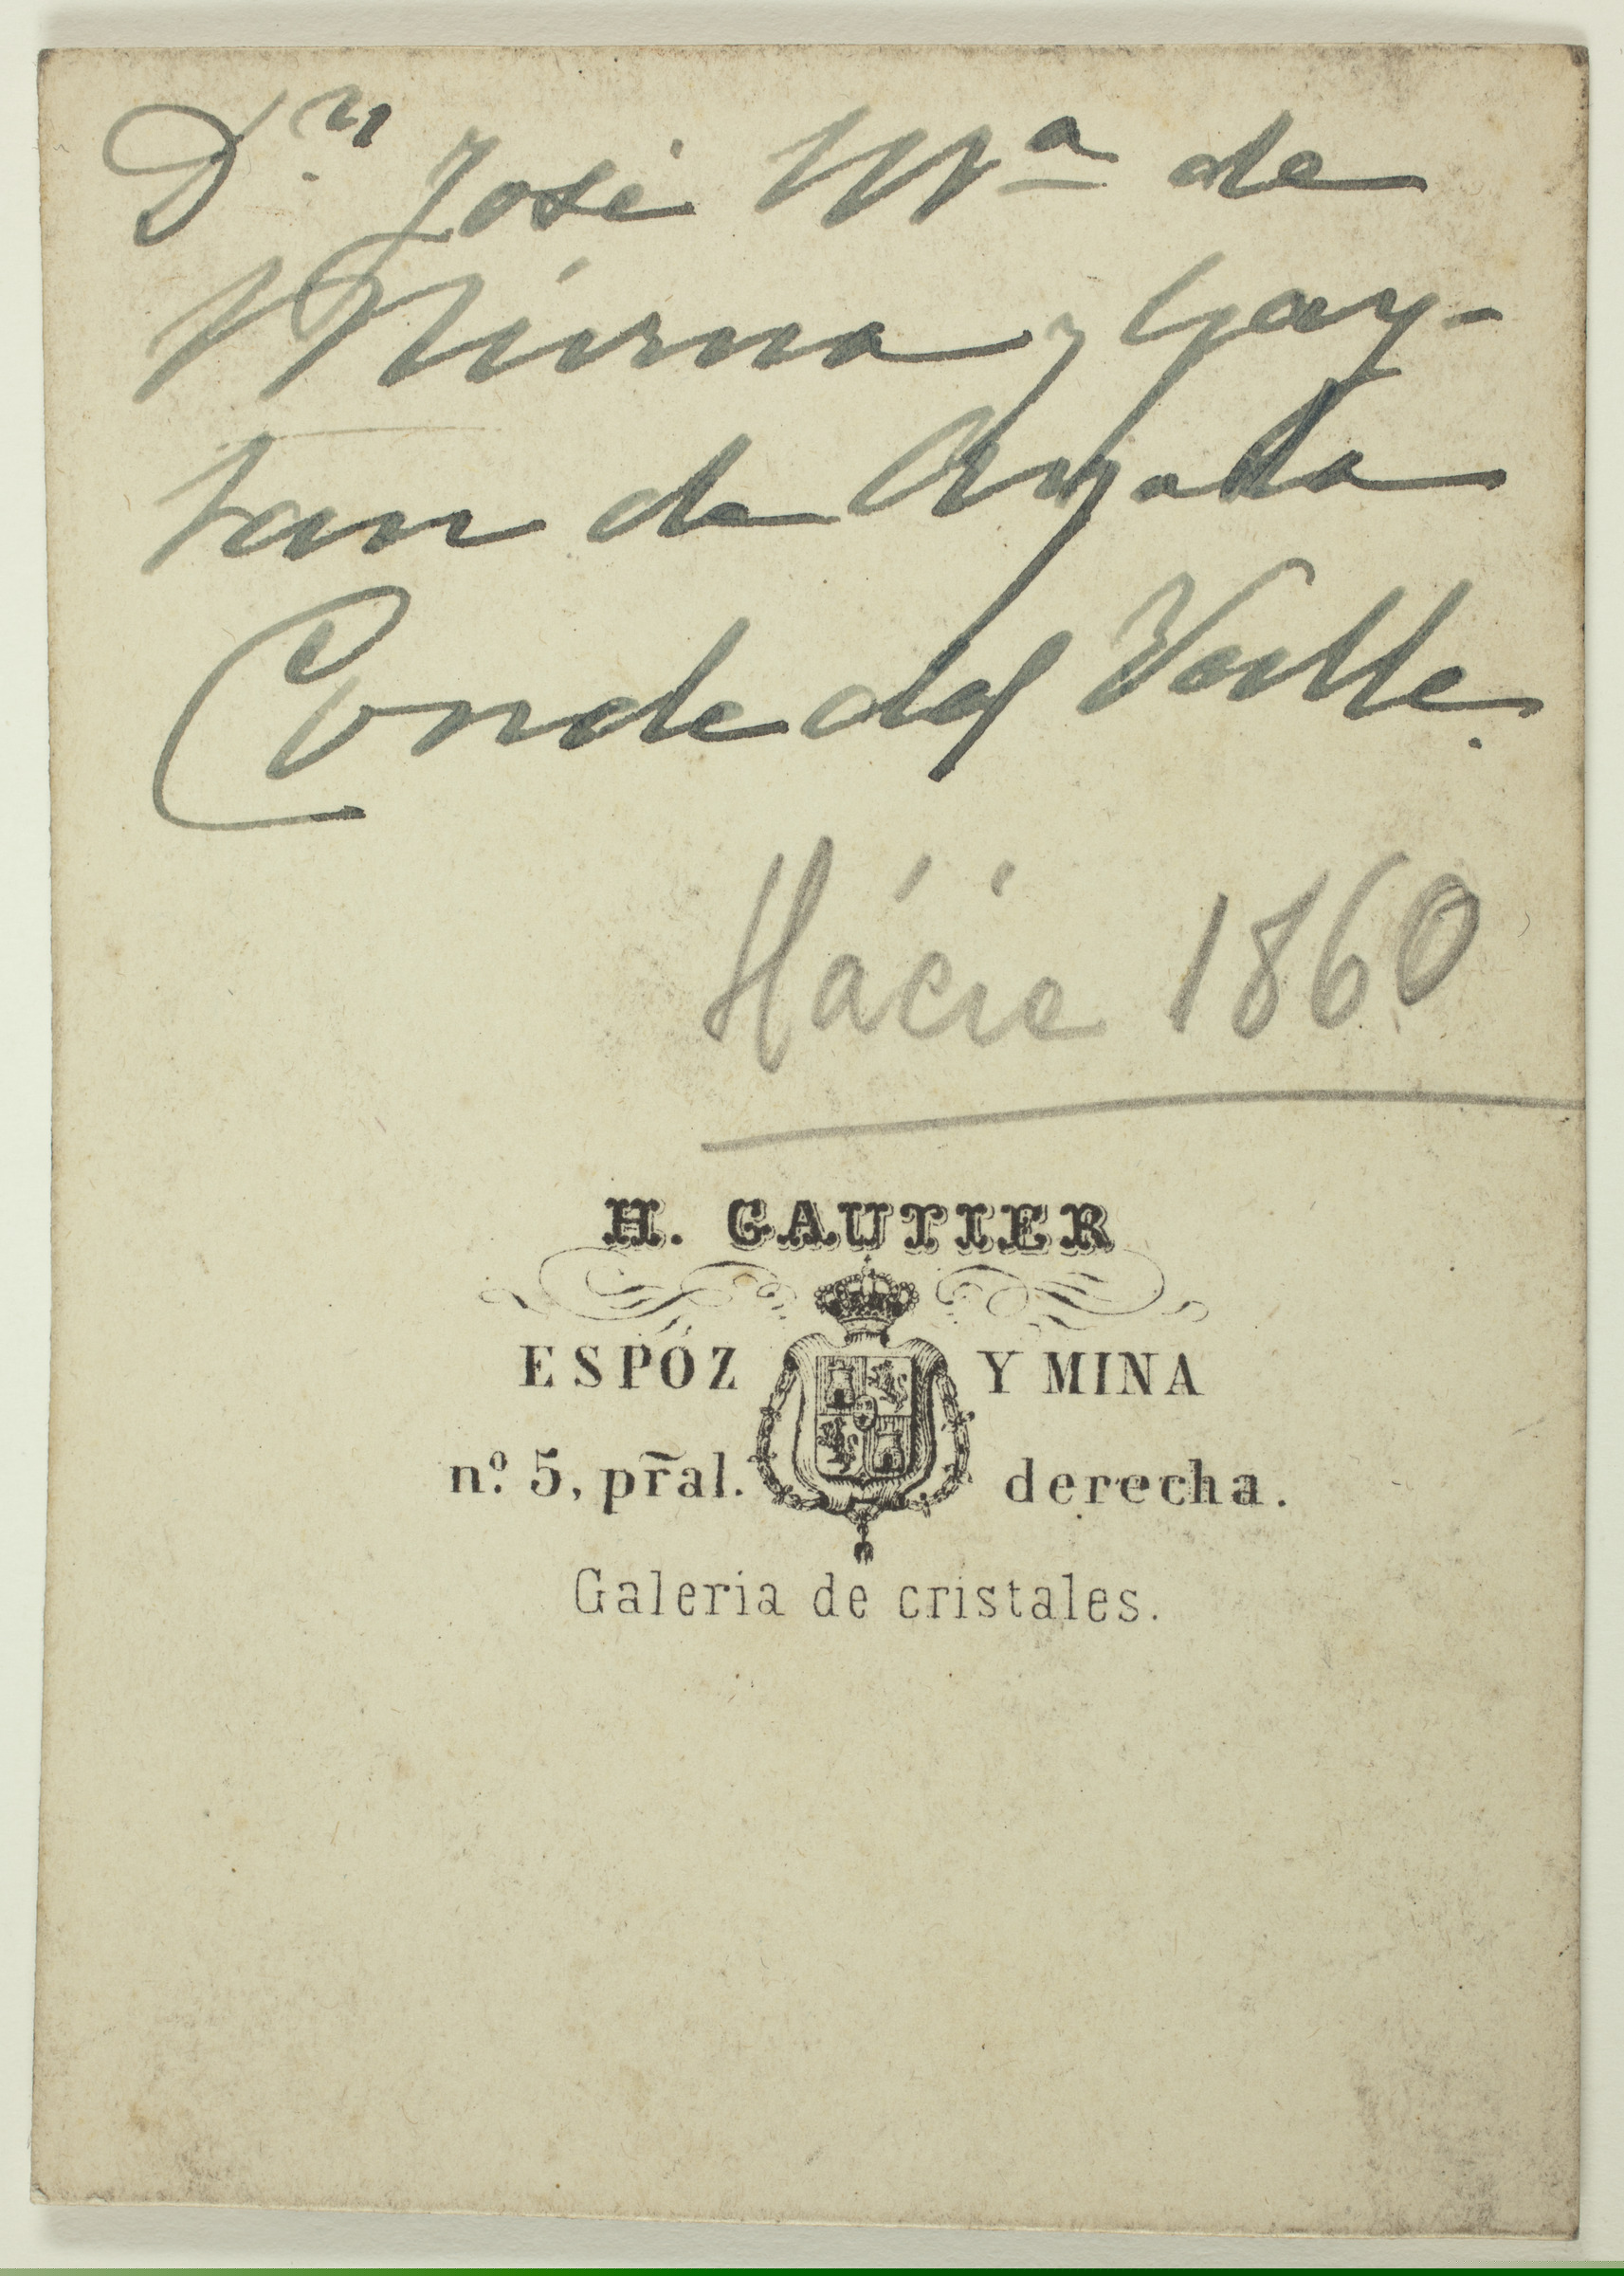 D.ⁿ José Mª de
Múrna y Gay-
tan de Ayala
Conde del Valle.
Hácie 1860
H. GAUTIER
ESPÓZ Y MINA
nº 5, pr̃al. derecha.
Galeria de cristales.